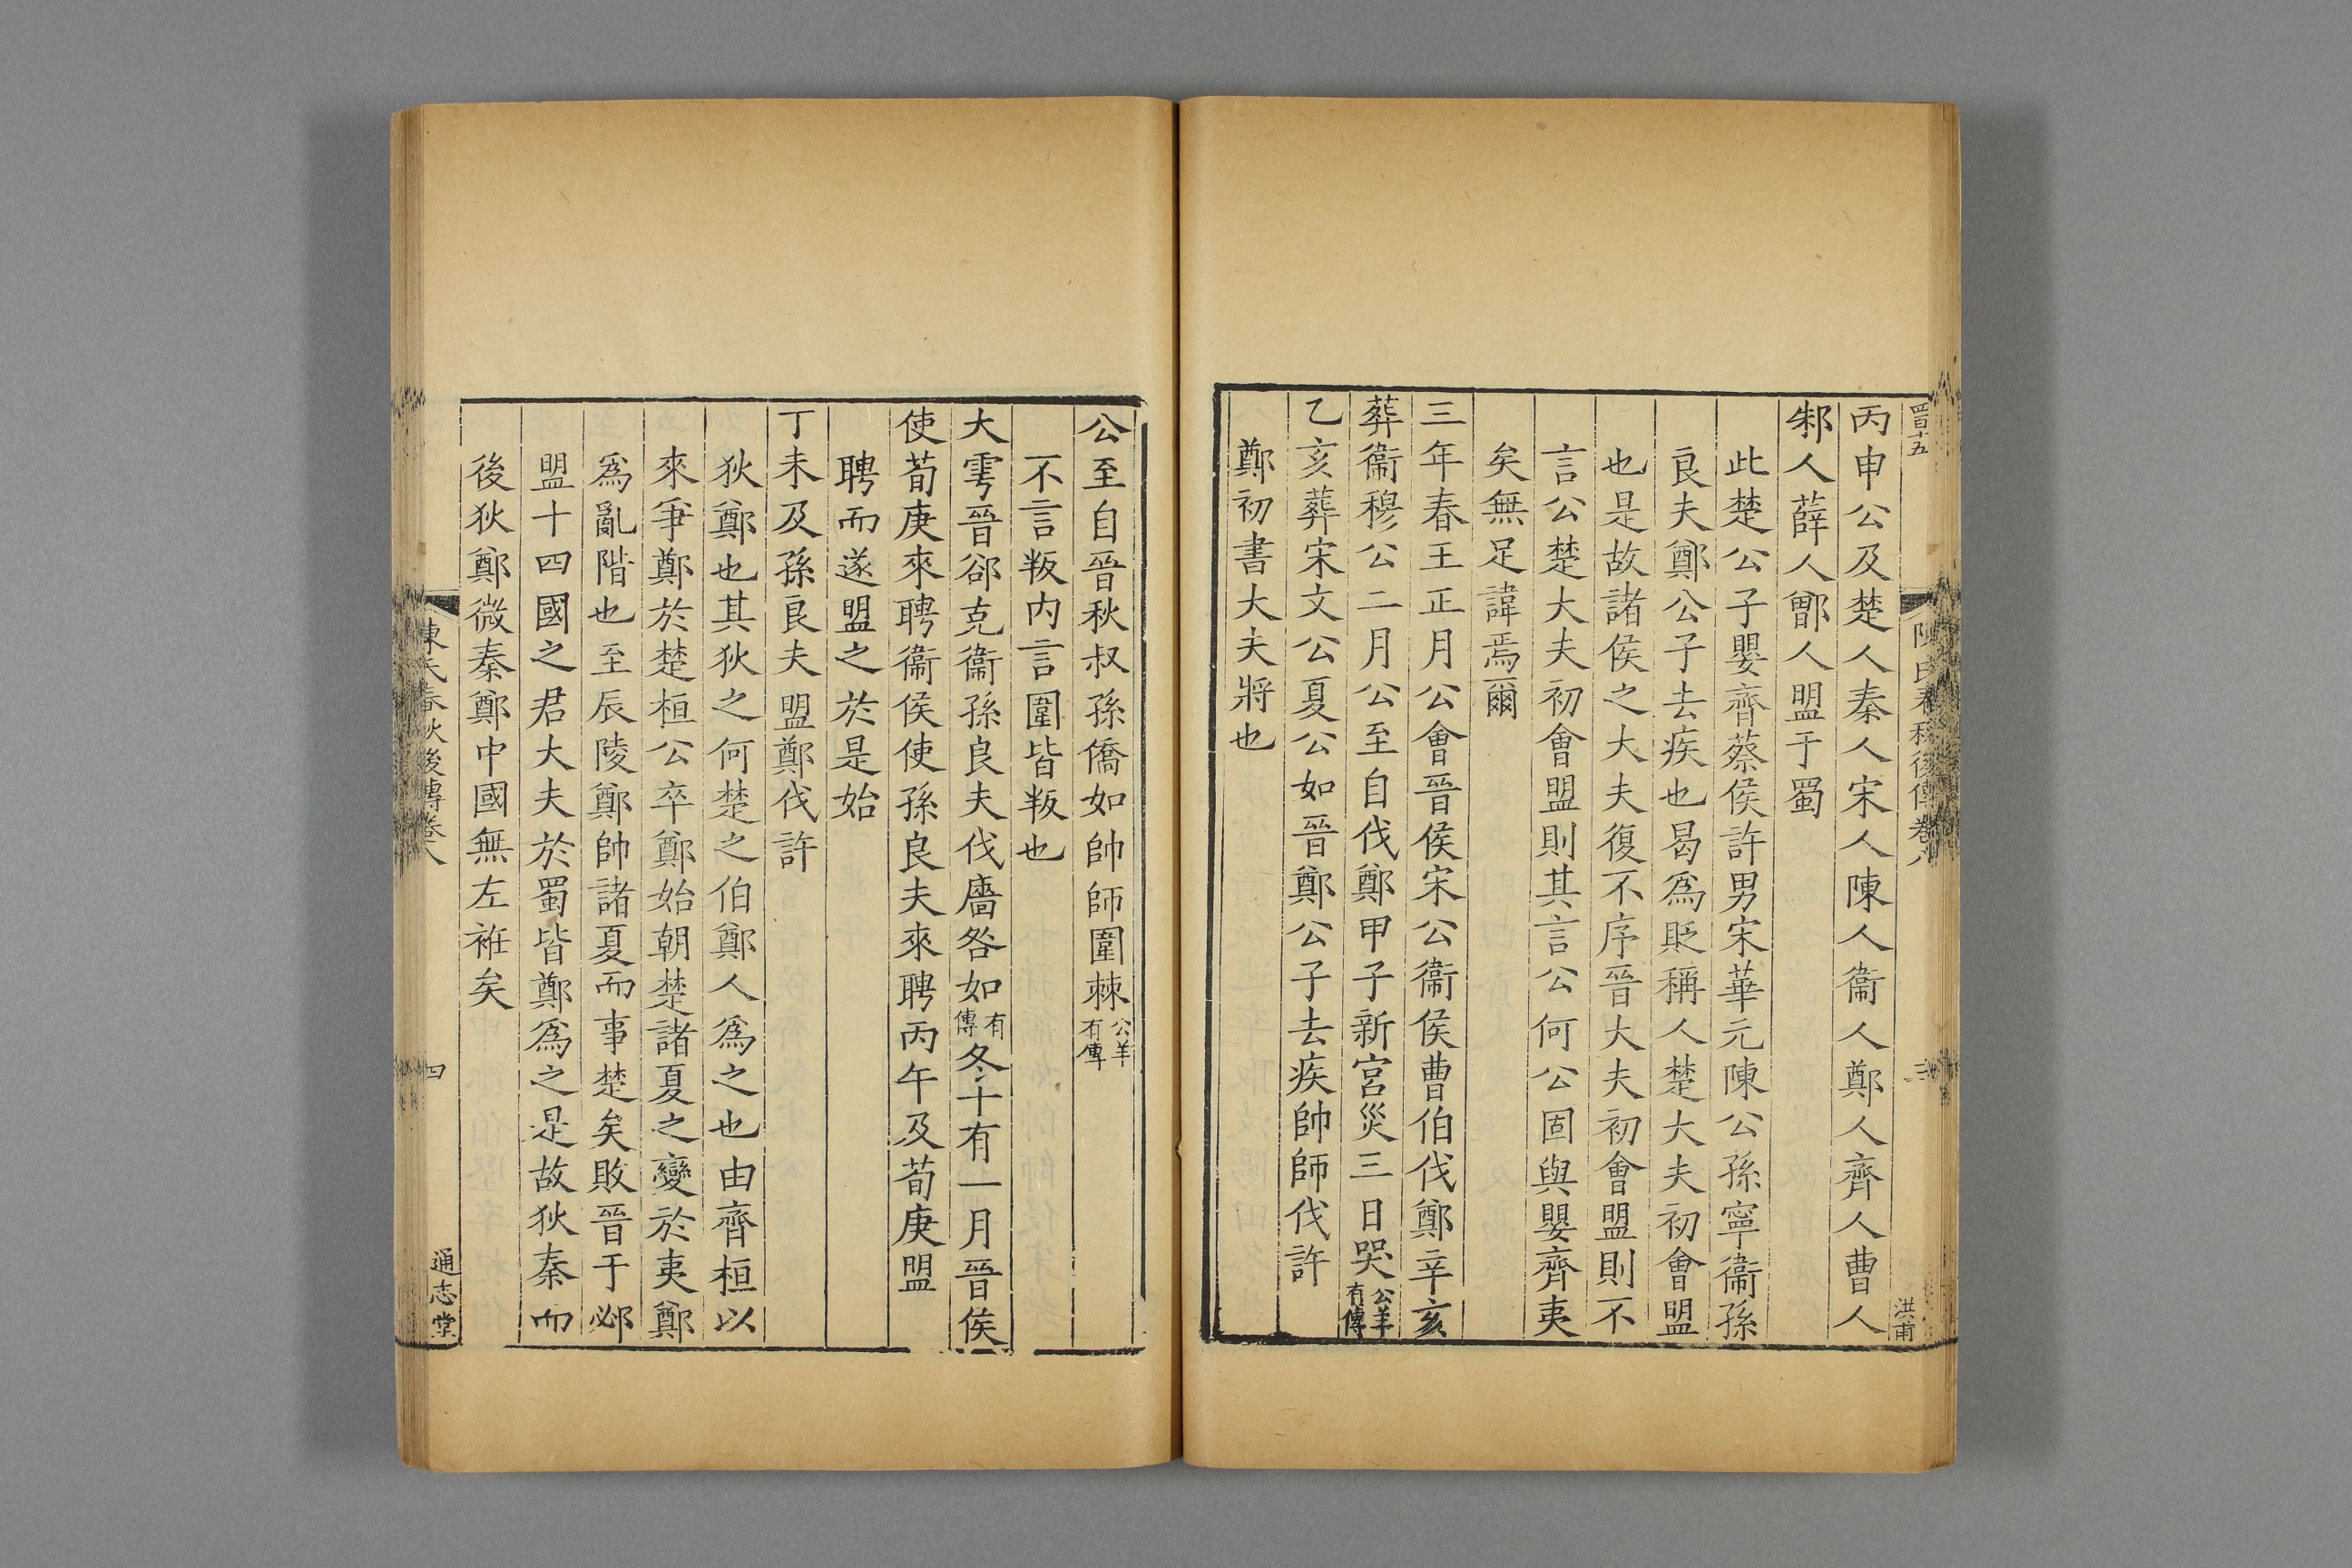 陳氏春秋後傳卷八
三
洪甫
丙申公及楚人秦人宋人陳人衞人鄭人齊人曹人
邾人薛人鄫人盟于蜀
此楚公子嬰齊蔡侯許男宋華元陳公孫寧衞孫
良夫鄭公子去疾也曷爲貶稱人楚大夫初會盟
也是故諸侯之大夫復不序晉大夫初會盟則不
言公楚大夫初會盟則其言公何公固與嬰齊夷
矣無足諱焉爾
三年春王正月公會晉侯宋公衞侯曹伯伐鄭辛亥
葬衞穆公二月公至自伐鄭甲子新宮災三日哭公羊有傳
乙亥葬宋文公夏公如晉鄭公子去疾帥師伐許
鄭初書大夫將也
公至自晉秋叔孫僑如帥師圍棘公羊有傳
不言叛内言圍皆叛也
大雩晉郤克衞孫良夫伐廧咎如有傳冬十有一月晉侯
使荀庚來聘衞侯使孫良夫來聘丙午及荀庚盟
聘而遂盟之於是始
丁未及孫良夫盟鄭伐許
狄鄭也其狄之何楚之伯鄭人爲之也由齊桓以
來爭鄭於楚桓公卒鄭始朝楚諸夏之變於夷鄭
爲亂階也至辰陵鄭帥諸夏而事楚矣敗晉于邲
盟十四國之君大夫於蜀皆鄭爲之是故狄秦而
後狄鄭微秦鄭中國無左袵矣
陳氏春秋後傳卷八
四
通志堂